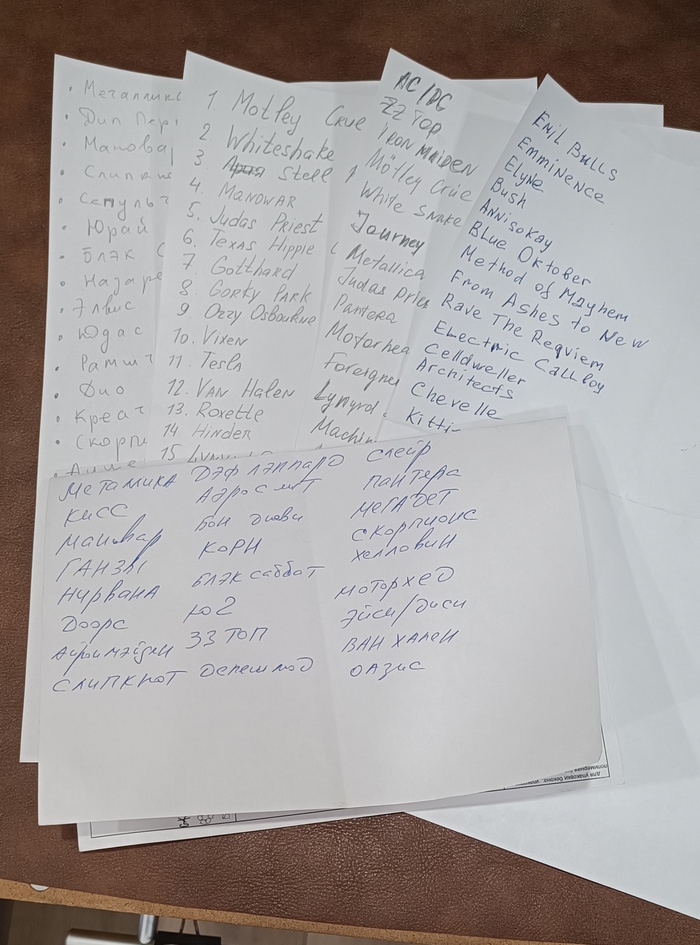 • Металлик
• Дип Пер
• Манова
• Слипкн
• Сепульт
• Юрай
• Блэк С
• Назаре
• Элвис
• Юдас
• Рамшт
• Дио
• Креат
• Скорпи
1. Motley Crue
2 Whiteshake
3 Stell
4. Manowar
5. Judas Priest
6. Texas Hippie
7 Gotthard
8 Gorky Park
9 Ozzy Osbourne
10. Vixen
11. Tesla
12. Van Halen
13. Roxette
14 Hinder
15
AC/DC
ZZ TOP
IRON MAIDEN
Mötley Crüe
White Snake
Journey
Metallica
Judas Pries
Pantera
Motorhea
Foreigner
Lynyrd
Machin
Emil Bulls
Emminence
Elyne
Bush
Annisokay
Blue Oktober
Method of Mayhem
From Ashes to New
Rave The Reqviem
Electric Callboy
Celldweller
Architects
Chevelle
Kitti
Металика
Кисс
Мановар
Ганзы
Нирвана
Доорс
Айронмэйден
Слипкнот
Дэф Лэппард
Аэросмит
Бон Джови
Корн
Блэк саббат
Ю2
ЗЗ ТОП
Депеш мод
Слейр
Пантера
Мегадет
Скорпионс
Хелловин
Моторхед
Эйси/диси
Ван Хален
Оазис